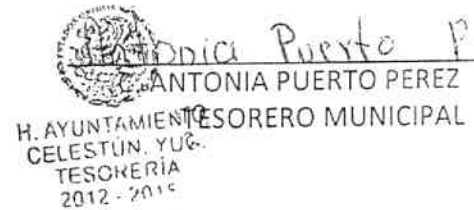 Antonia Puerto P
ANTONIA PUERTO PEREZ
TESORERO MUNICIPAL
H. AYUNTAMIENTO
CELESTÚN, YUC.
TESORERÍA
2012 - 2015